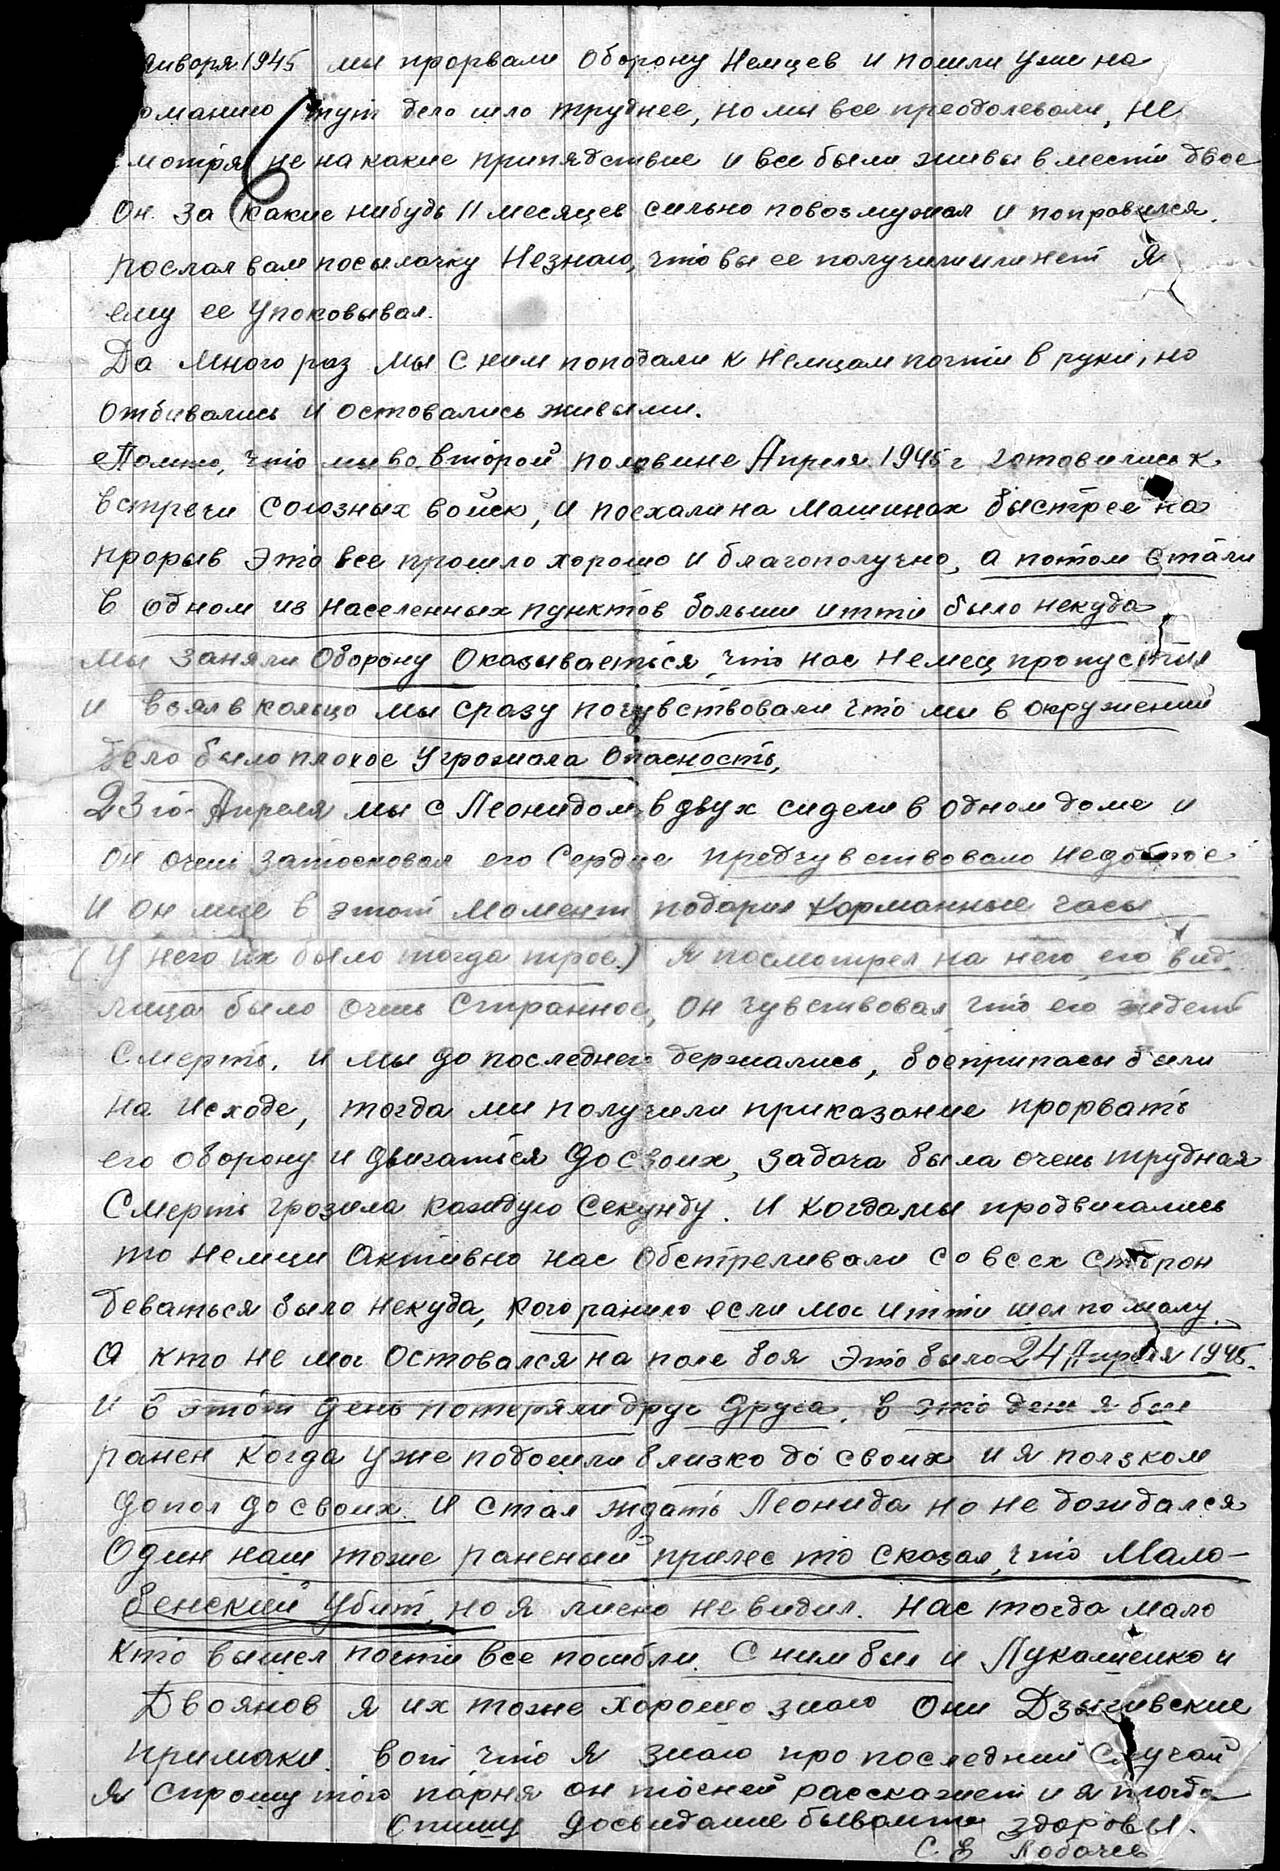 января 1945 мы прорвали Оборону Немцев и пошли уже на
тут дело шло труднее, но мы все преодолевали, не
смотря не на какие припядствие и все были живы вмести двое
Он за какие нибудь 11 месяцев сильно повозмужал и поправился.
послал вам посылочку Незнаю, что вы ее получили или нет Я
ему ее Упоковывал.
Да много раз мы с ним пополдали к немцам почти в руки, но
отбивались и остовались живыми.
Помню, что мы во второй половине Апреля 1945 г готовились к
встречи союзных войск, и поехали на машинах быстрее на
прорыв Это все прошло хорошо и благополучно, а потом стали
в одном из населенных пунктов больши итти было некуда
мы заняли Оборону Оказываеться, что нас Немец пропустил
и взял в кольцо мы сразу почувствовали что ми в окружении
дело было плохое Угрожала Опасность,
23го Апреля мы с Леонидом в двух сидели в одном доме и
он очень затосковал его Сердце предчувствовало недоброе
И он мне в этот момент подарил карманные часы
(У него их было тогда трое.) Я посмотрел на него его вид
лица было очень Странное, он чувствовал что его ждет
Смерть. И мы до последнего держались, боеприпасы были
на исходе, тогда ми получили приказание прорвать
его оборону и двигаться до своих, задача была очень трудная
Смерть грозила каждую секунду. И когда мы продвигались
то немцы активно нас обстреливали со всех сторон
деваться было некуда, кого ранило если мог итти шол по малу.
А кто не мог остовался на поле боя Это было 24 Апреля 1945.
И в этот день потеряли друг друга, в это день я был
ранен когда уже подошли близко до своих и я ползком
допол до своих И стал ждать Леонида но не дождался
Один наш тоже раненый прилез то сказал, что Мало-
венский Убит, но я лисно не видил. Нас тогда мало
кто вышел почти все погибли. С ним был и Лукашенко и
Двоянов я их тоже хорошо знаю Они Дзыгивские
примаки. вот что я знаю про последний случай
Я спрошу того парня он точней расскажет и я тогда
Опишу Досвидание бывайте здоровы.
С. Е Лобачев